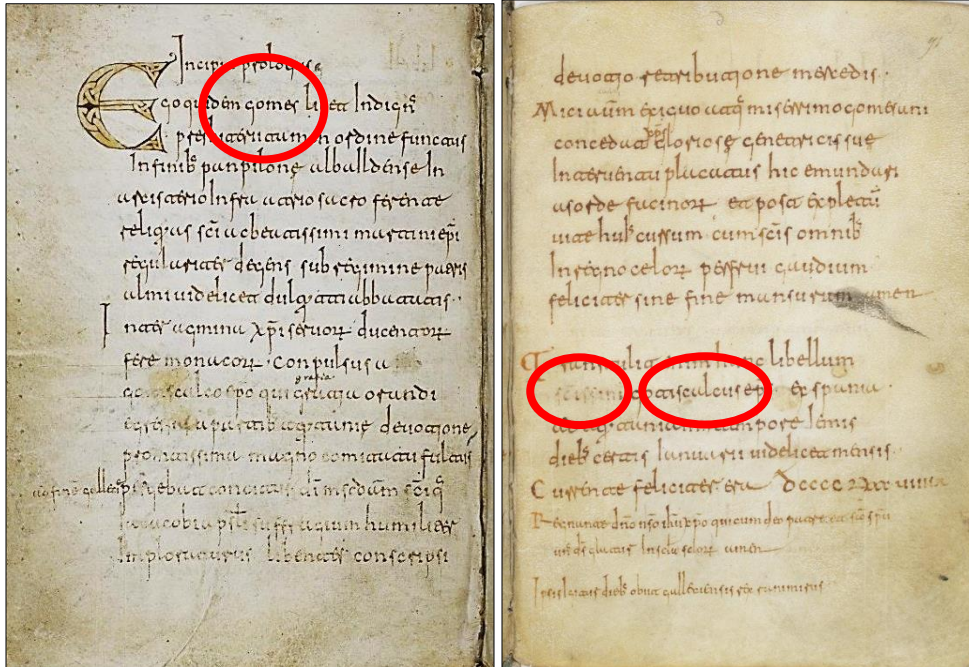 Incipit prologus
Ego quidem gomes licet Indignꝰ
presbiterii tamen ordine functus
In finibꝰ panpilone albaildense In
arcisterio Infra atrio sacro ferente
reliqias sc̄i ac beatissimi martini ep̄i
regulariter degens sub regimine patris
almi uidelicet dulquitti abbatis
Inter agmina xp̄i seruorꝝ ducentorꝝ
fere monacorꝝ Conpulsus a
gotiscalco ep̄o qui gratia orandi
egressus a partibꝰ aqitanie deuotione
promtissima magno comitatu fultus
ad finē gallecie pergebat concitus dī misc̄dam sc̄iq̄
Iacobi ap̄stli suffragium humiliter
Imploraturus libenter conscripsi
deuotio retribuqtione mercedis
Micium exiguo atq̄ miserrimo gomesani
concedat gloriose genetricis sue
Interuentu placatus hic emundari
a sorde facinorꝝ et post expletū
uite huiꝰ cursum cum sc̄is omnibꝰ
In regno celorꝝ perfrui gaudium
feliciter sine fine mansurum amen
Transtulit enim hunc libellum
sc̄issimꝰ gotiscalcus ep̄s ex spania
ad aqitaniam tempore iemis
diebꝰ certis Ianuarii uidelicet mensis
Currente feliciter era dcccclxxxviiiia
Regnante dn̄o nso ihū xp̄o qui cum deo patre et sc̄o spū
unꝰ ds̄ gloriatur In sc̄la sc̄lorꝝ amen
Ipsis igitur diebꝰ obiit galleciensis rex ranimirus